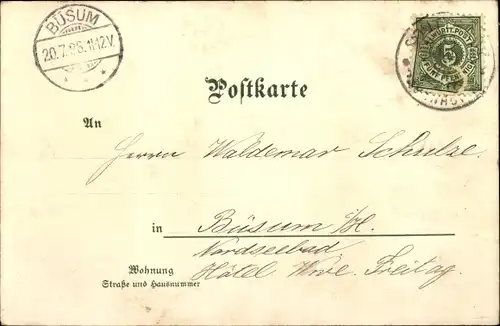 BÜSUM
20.7.98. 11-12 V.
K. WÜRTT. POST
5
Postkarte
An
Herrn Waldemar Schulze.
in Büsum i/H.
Nordseebad
Wohnung
Straße und Hausnummer
Hôtel Wwe. Freitag.